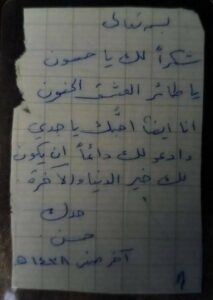 بسمه تعالى
شكراً لك يا حسون
يا طائر العشق الحنون
انا ايضاً احبك يا جدي
وادعو لك دائماً ان يكون
لك خير الدنيا والآخرة
جدك
حسن
آخر صفر ١٤٣٨ هـ